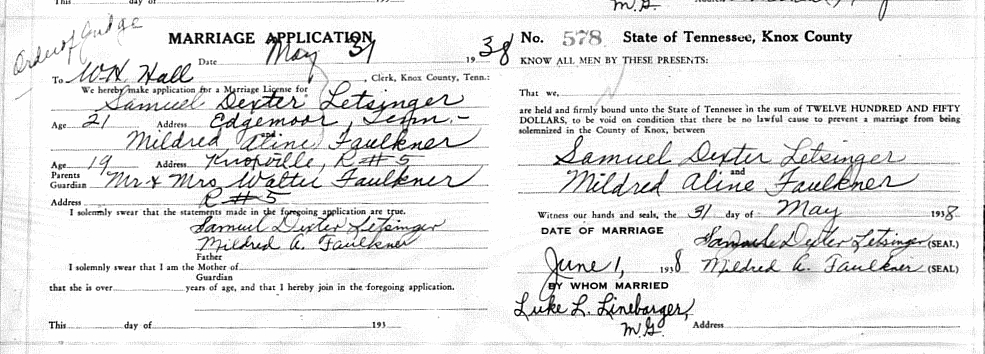 This day of 193
M.G.
Order of Judge
MARRIAGE APPLICATION
Date May 31 1938
To W.H. Hall, Clerk, Knox County, Tenn.:
We hereby make application for a Marriage License for
Samuel Dexter Letsinger
Age 21 Address Edgemoor, Tenn.-
and
Mildred Aline Faulkner
Age 19 Address Knoxville, R#5
Parents
Guardian Mr & Mrs Walter Faulkner
Address R#5
I solemnly swear that the statements made in the foregoing application are true.
Samuel Dexter Letsinger
Mildred A. Faulkner
Father
I solemnly swear that I am the Mother of
Guardian
that she is over years of age, and that I hereby join in the foregoing application.
This day of 193
No. 578 State of Tennessee, Knox County
KNOW ALL MEN BY THESE PRESENTS:
That we,
are held and firmly bound unto the State of Tennessee in the sum of TWELVE HUNDRED AND FIFTY
DOLLARS, to be void on condition that there be no lawful cause to prevent a marriage from being
solemnized in the County of Knox, between
Samuel Dexter Letsinger
and
Mildred Aline Faulkner
Witness our hands and seals, the 31 day of May 1938
DATE OF MARRIAGE
Samuel Dexter Letsinger (SEAL)
June 1, 1938 Mildred A. Faulkner (SEAL)
BY WHOM MARRIED
Luke L. Linebarger,
M.G. Address